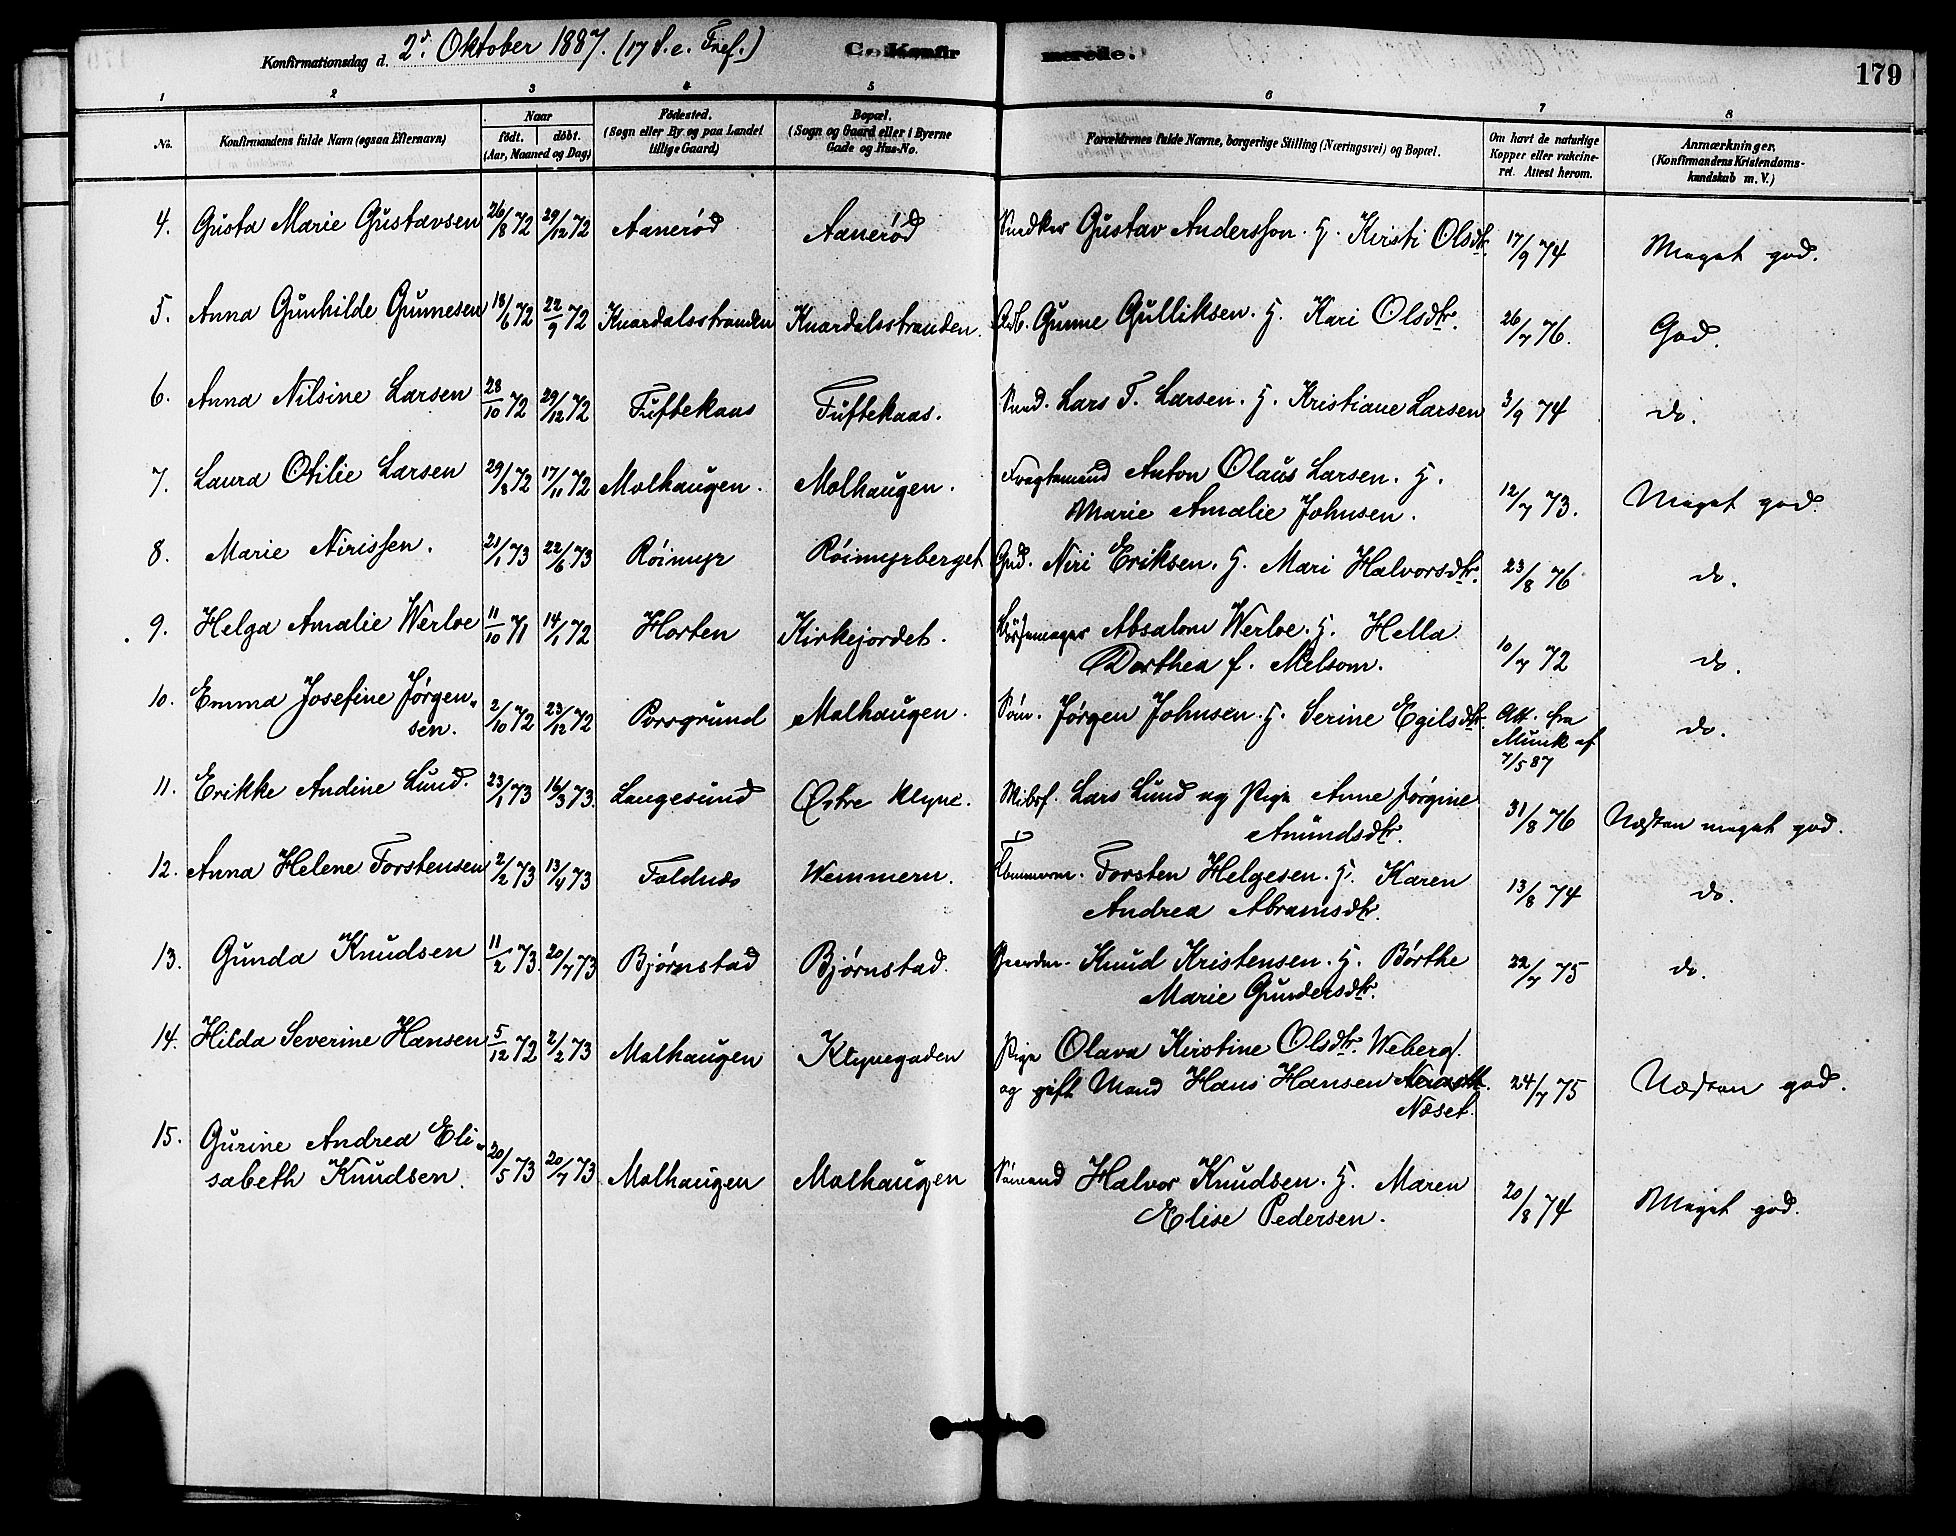 Konfirmationsdag d. 2d. Oktober 1887. (17 S. e. Tref.) C. Konfirmerede. 179
1 2 3 4 5 6 7 8
No. Konfirmandens fulde Navn (ogsaa Efternavn) Naar födt. döbt. (Aar, Maaned og Dag) Födested. (Sogn eller By og paa Landet tillige Gaard) Bopæl. (Sogn og Gaard eller i Byerne Gade og Hus-No. Forældrenes fulde Navne, borgerlige Stilling (Næringsvei) og Bopæl. Om havt de naturlige Kopper eller vakcineret. Attest herom. Anmærkninger, (Konfirmandens Kristendomskundskab m. V.)
4. Gusta Marie Gustavsen 26/8 72 29/12 72 Aanerød Aanerød Snedker Gustav Andersson. H. Kirsti Olsdtr. 17/9 74 Meget god.
5. Anna Gunhilde Gunnesen 18/6 72 22/9 72 Knardalsstranden Knardalsstranden. Arb. Gunne Gulliksen. H. Kari Olsdtr. 26/7 76. God.
6. Anna Nilsine Larsen 28/10 72 29/12 72 Tuftekaas Tuftekaas. Sned. Lars T. Larsen. H. Kristiane Larsen 3/9 74 do.
7. Laura Otilie Larsen 29/8 72 17/11 72 Molhaugen. Molhaugen. Fragtemand Anton Olaus Larsen. H.
Marie Amalie Johnsen. 12/7 73. Meget god.
8. Marie Nirissen. 21/1 73 22/6 73 Röimyr Röimyrberget Gbd. Niri Eriksen. H. Mari Halvorsdtr. 23/8 76 do.
9. Helga Amalie Werloe 11/10 71 14/1 72 Horten Kirkejordet. Børsemager Absalom Werloe. H. Hella
Dorthea f. Melsom. 10/7 72 do.
10. Emma Josefine Jørgen-
sen. 2/10 72 23/12 72 Porsgrund Molhaugen. Søm. Jørgen Johnsen. H. Serine Egilsdtr. Att. fra
Munk af
7/5 87 do.
11. Erikke Andine Lund. 23/1 73 16/3 73. Langesund Østre Klyve. Lars Lund og Pige Anne Jørgine
Amundsdtr. 31/8 76 Næsten meget god.
12. Anna Helene Torstensen 2/2 73 13/4 73 Foldnæs Wemmern. Tømmerm. Torsten Helgesen. H. Karen
Andrea Abramsdtr. 13/8 74 do.
13. Gunda Knudsen 11/2 73. 20/7 73 Bjørnstad Bjørnstad. Knud Kristensen. H. Börthe
Marie Gundersdtr. 22/7 75 do.
14. Hilda Severine Hansen 5/12 72 2/2 73 Molhaugen Klyvegaden Pige Olava Kirstine Olsdtr. Weberg.
og gift Mand Hans Hansen
Næset. 24/7 75 Næsten god.
15. Gurine Andrea Eli-
sabeth Knudsen. 20/5 73 20/7 73 Molhaugen Molhaugen Sömand Halvor Knudsen. H. Maren
Elise Pedersen. 20/8 74 Meget god.